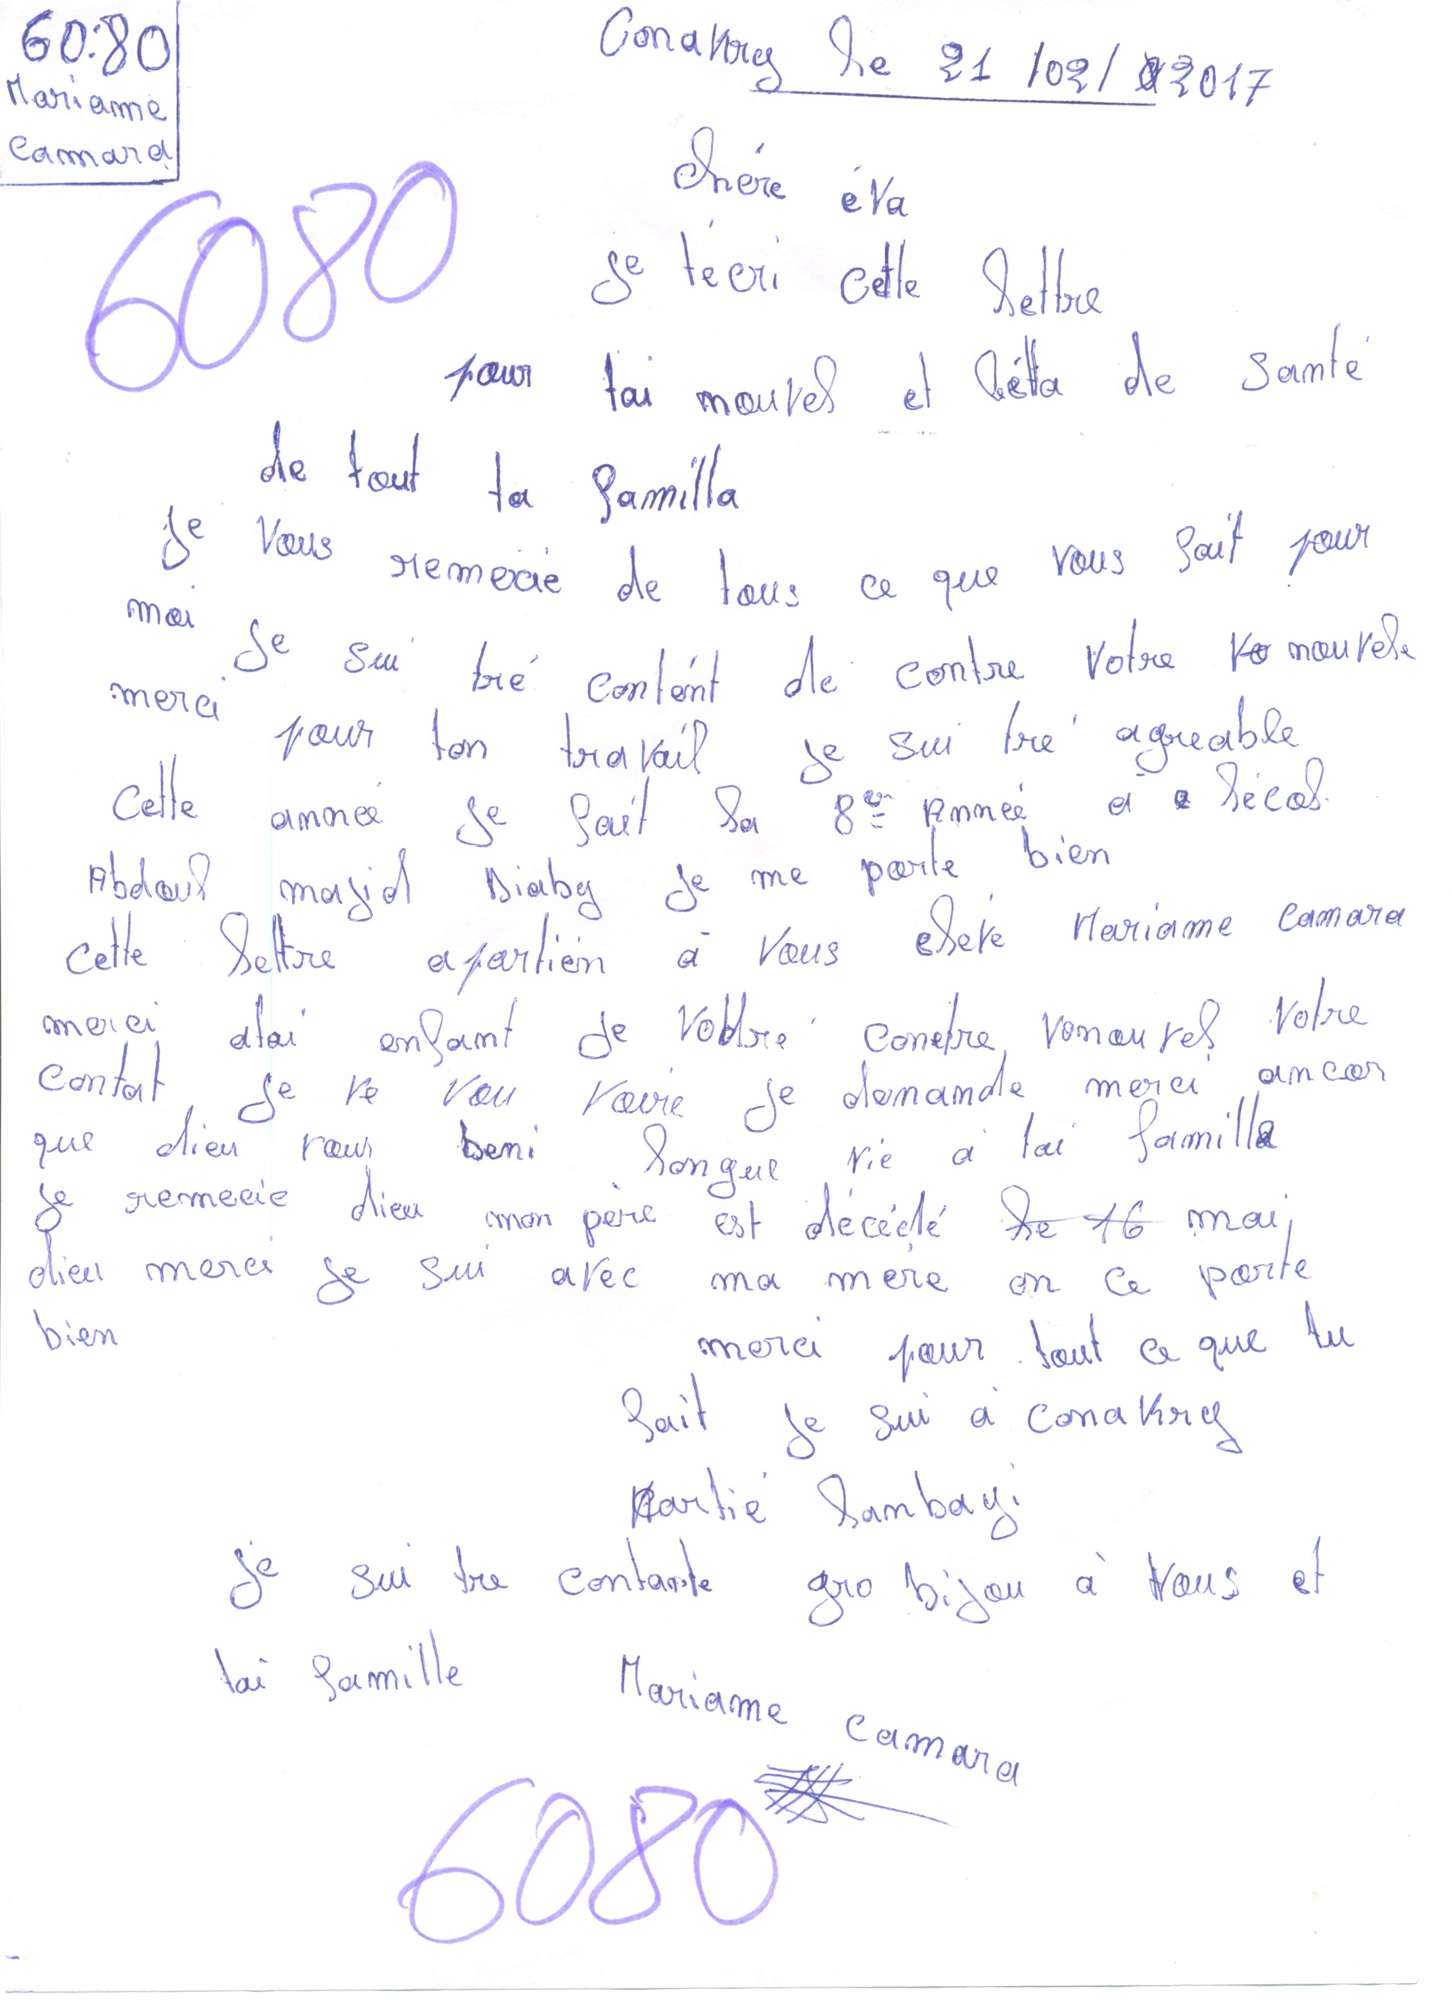 60:80
Mariame
Camara
Conakry le 21/02/2017
6080
chère éva
Je técri cette lettre
pour tai nouvel et létta de santé
de tout ta familla
Je vous remecie de tous ce que vous fait pour
moi Je sui tré contént de contre votre nouvele
merci pour ton travail je sui tré agreable
Cette année je fait la 8er Année à lécol
Abdoul majid Diaby je me porte bien
cette lettre apartién à vous Mariame camara
merci dtai enfant de votre vonouvel votre
contat je ve vou voire je demande merci ancor
que dieu vous beni longue vie à tai familla
je remecie dieu mon père est décédé le 16 mai
dieu merci je sui avec ma mère on ce porte
bien merci pour tout ce que tu
fait je sui à conakry
kartié lambayi
Je sui tre contante gro bijou à vous et
tai famille Mariame camara
6080